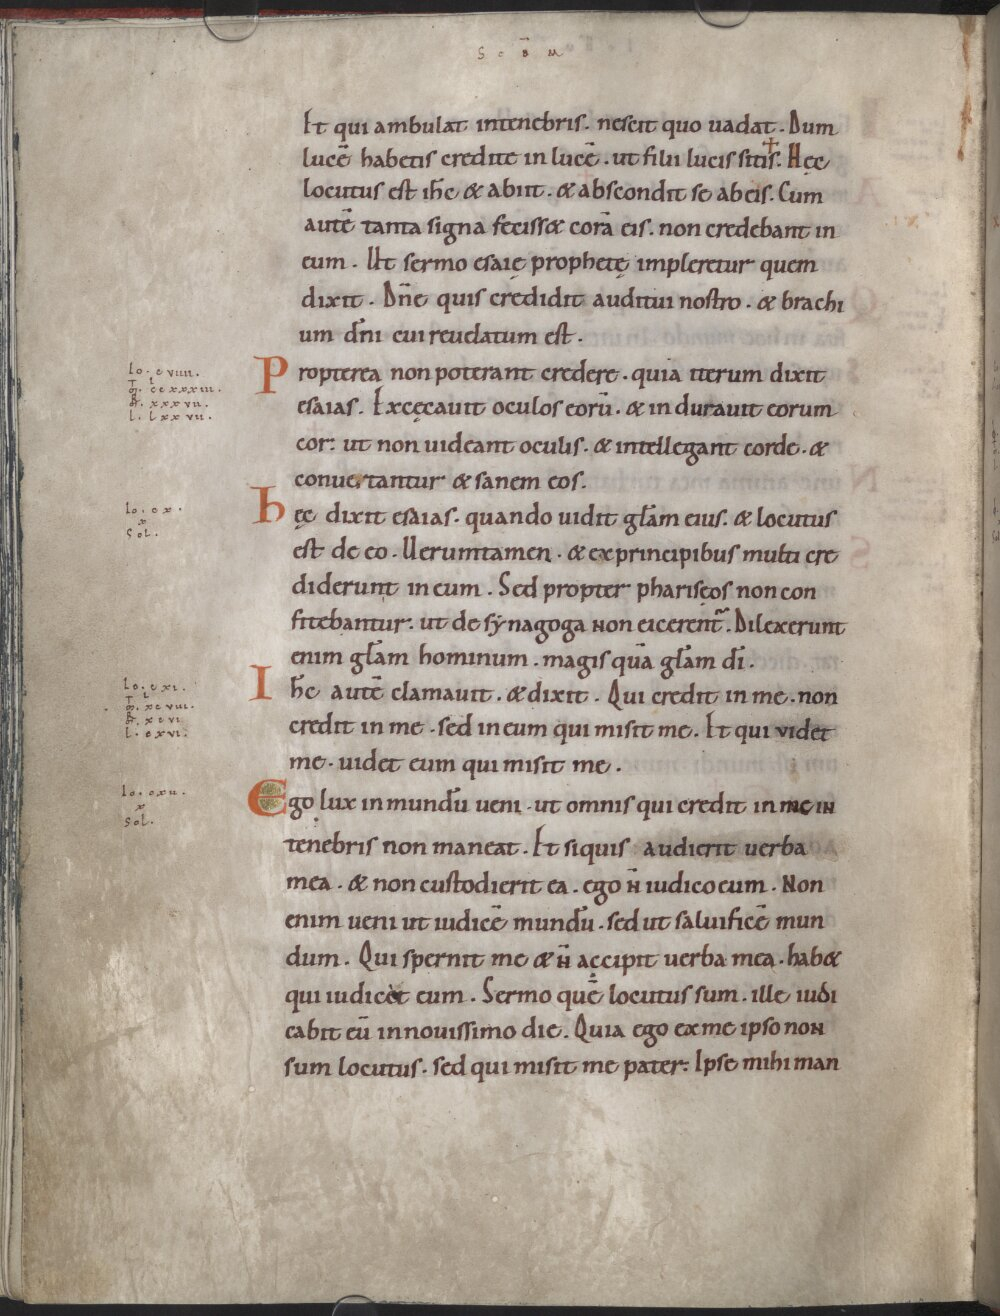 S c̄ B M
Et qui ambulat intenebris. nescit quo uadat. Dum
lucē habetis credite in lucē. ut filii lucis sitis. Hęc
locutus est ih̄c & abiit. & abscondit se abeis. Cum
autē tanta signa feciss& corā eis. non credebant in
eum. Ut sermo esaię prophetę impleretur quem
dixit. Dn̄e quis credidit auditui nostro. & brachi
um dn̄i cui reuelatum est.
Io. c viiii.
Propterea non poterant credere. quia iterum dixit
m̄. cc xxxiii.
mr̄. xxxvii.
esaias. Excęcauit oculos eorū. & in durauit eorum
l. lxxvii.
cor: ut non uideant oculis. & intellegant corde. &
conuertantur & sanem eos.
Io. cx.
hęc dixit esaias. quando uidit gl̄am eius. & locutus
x
sol.
est de eo. Uerumtamen. & ex principibus multi cre
diderunt in eum. Sed propter phariseos non con
fitebantur. ut de synagoga non eicerent᷑. Dilexerunt
enim gl̄am hominum. magis quā gl̄am dī.
Io. cxi.
Ih̄c autē clamauit. & dixit. Qui credit in me. non
m̄. xcviii.
mr̄. xcvi
credit in me. sed in eum qui misit me. Et qui videt
l. cxvi.
me. uidet eum qui misit me.
Io. cxii.
Ego lux in mundū ueni. ut omnis qui credit in me in
x
sol.
tenebris non maneat. Et siquis audierit uerba
mea. & non custodierit ea. ego n̄ iudico eum. Non
enim ueni ut iudicē mundū. sed ut saluificē mun
dum. Qui spernit me & n̄ accipit uerba mea. hab&
qui iudicet eum. Sermo quē locutus sum. ille iudi
cabit eū in nouissimo die. Quia ego ex me ipso non
sum locutus. sed qui misit me pater: Ipse mihi man